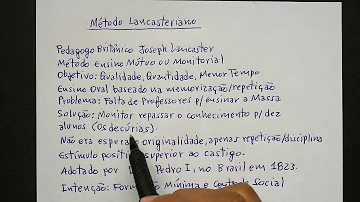 Método Lancasteriano
Pedagogo Britânico Joseph Lancaster
Método Ensino Mútuo ou Monitorial
Objetivo: Qualidade, Quantidade, Menor Tempo
Ensino Oral baseado na memorização/repetição
Problema: Falta de Professores p/ensinar a Massa
Solução: Monitor repassar o conhecimento p/dez
alunos (os decúrias).
Não era originalidade, apenas repetição/disciplina
Estímulo superior ao castigo.
Adotado por I, no Brasil em 1823.
Intenção: Mínima e Social